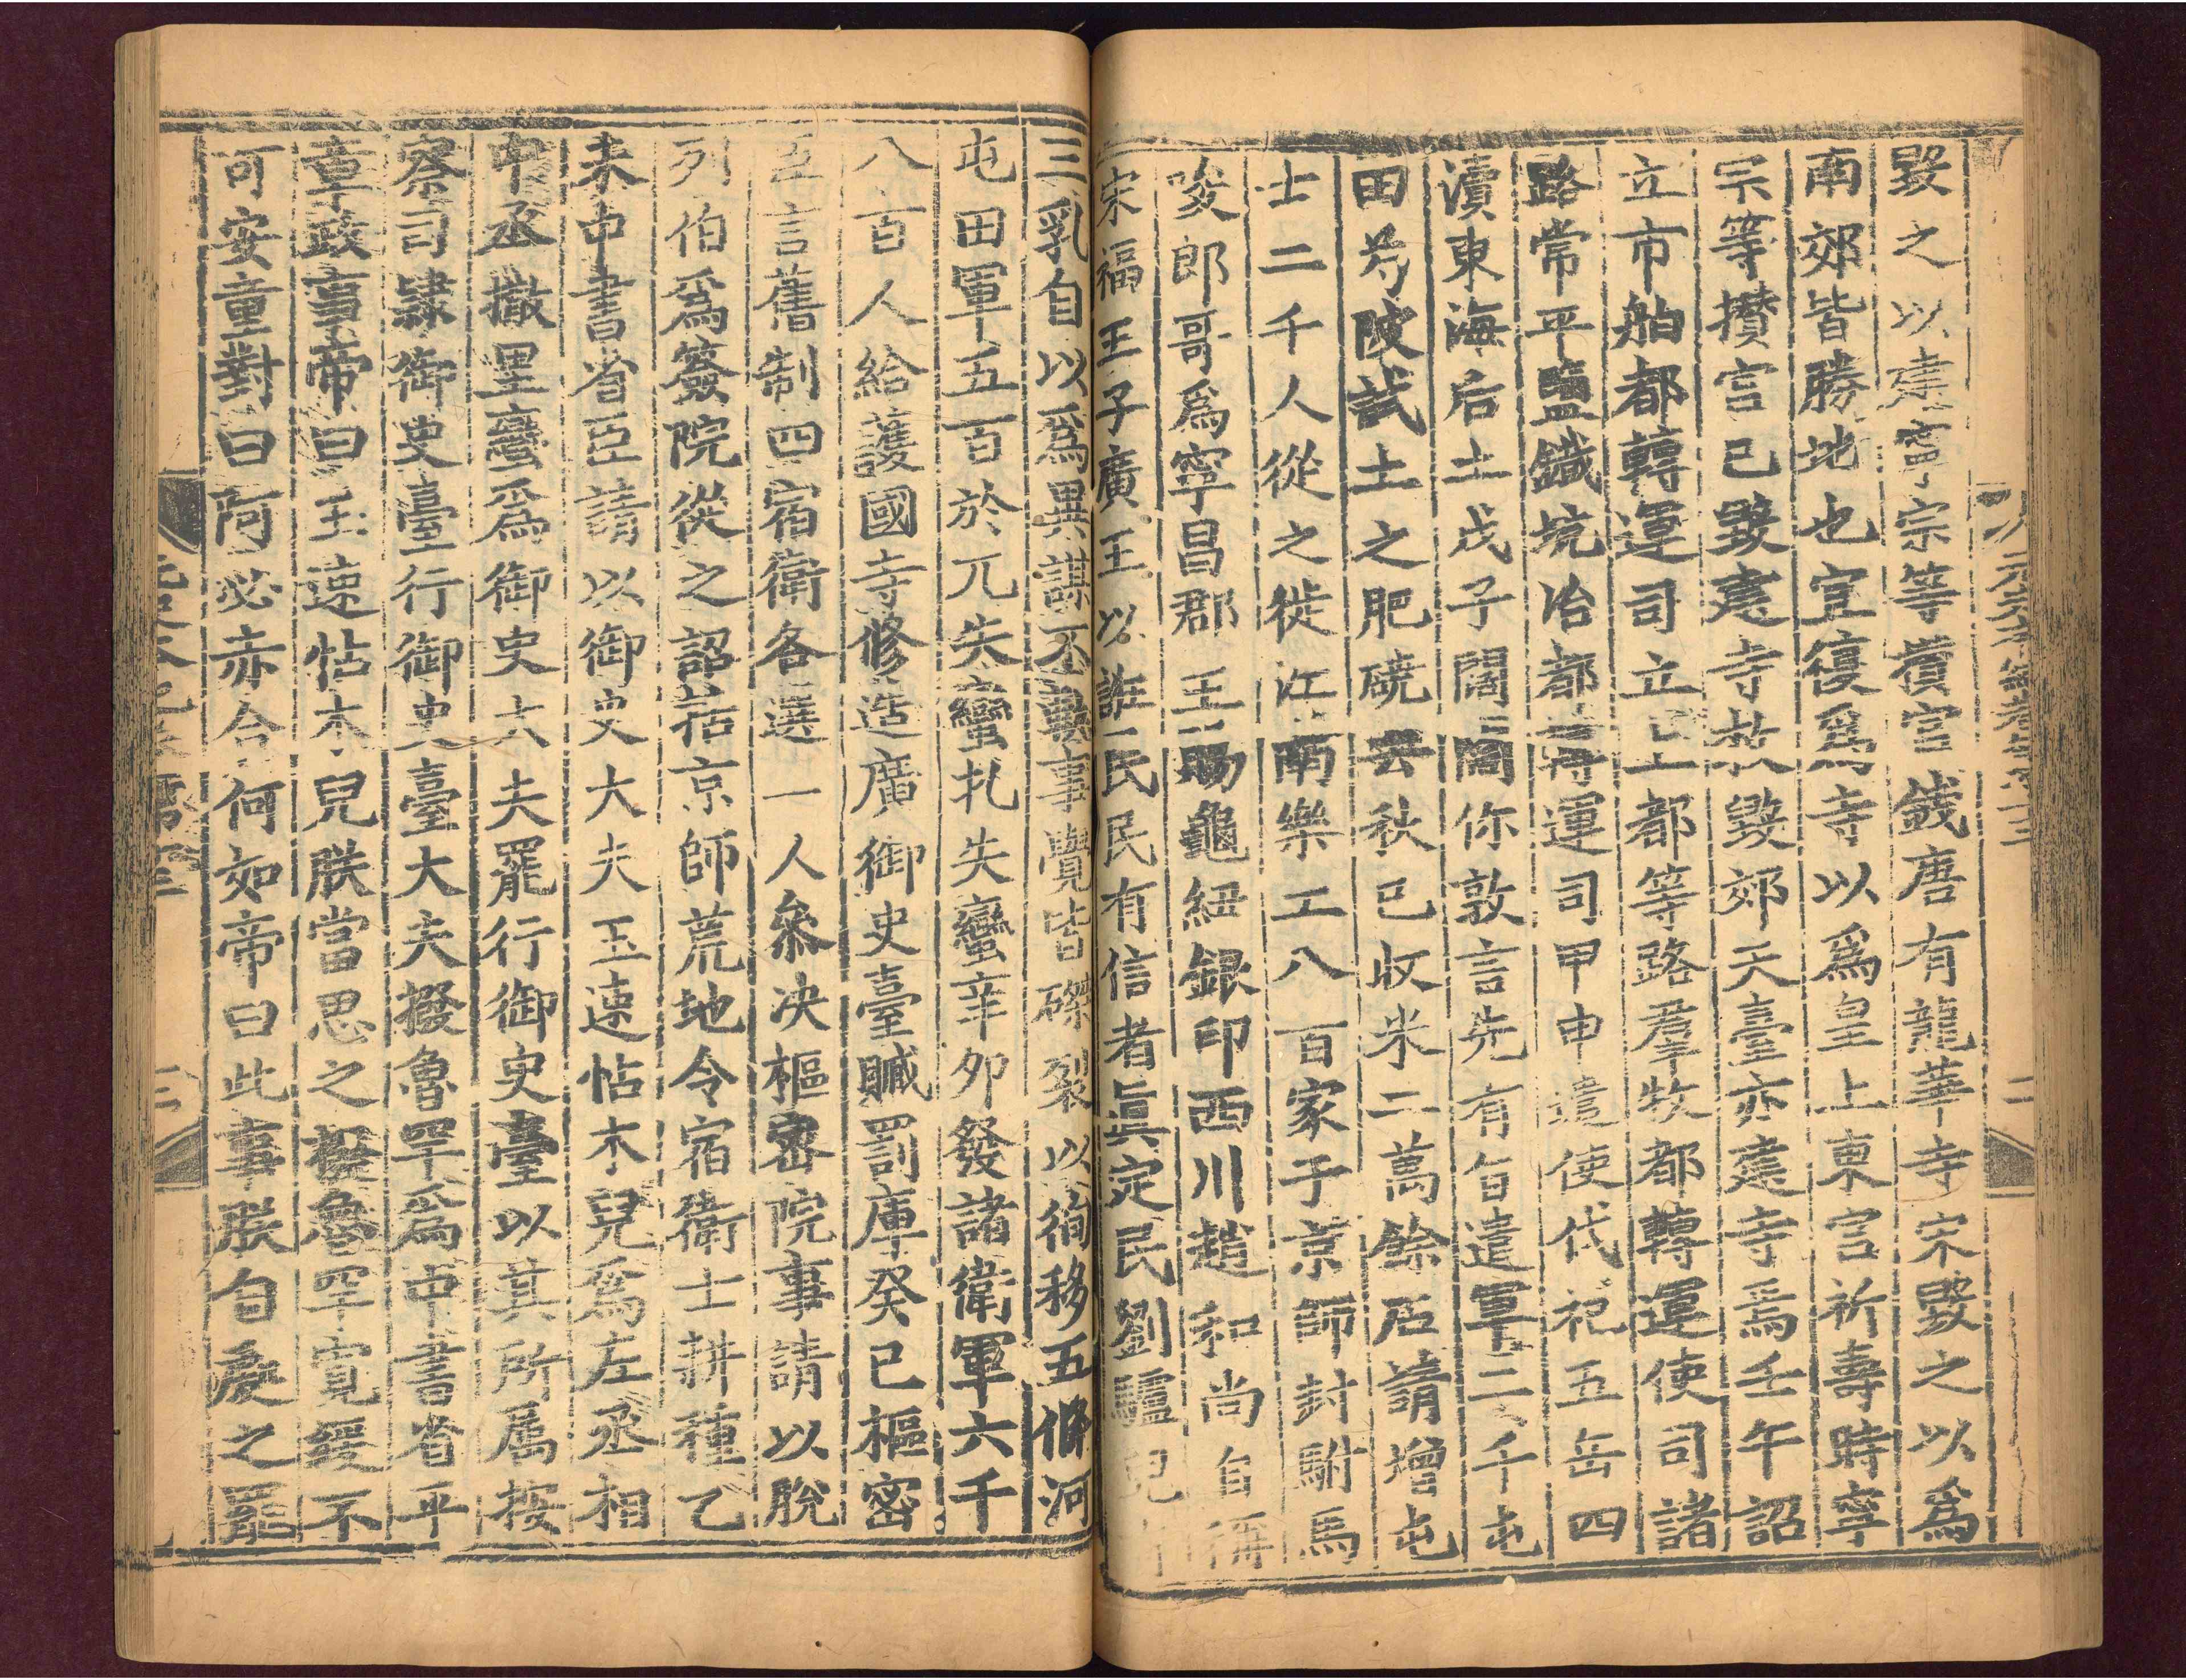 毀之以建寧宗等攢宮錢唐有龍華寺宋毀之以爲
南郊皆勝地也宜復爲寺以爲皇上東宮祈壽時寧
宗等攢宮已毀建寺敕毀郊天臺亦建寺焉壬午詔
立市舶都轉運司立上都等路羣牧都轉運使司諸
路常平鹽鐵坑冶都轉運司甲申遣使代祀五岳四
瀆東海后土戊子闊闊你敦言先有旨遣軍二千屯
田芍陂試土之肥磽去秋已收米二萬餘石請增屯
士二千人從之徙江南樂工八百家于京師封駙馬
唆郎哥爲寧昌郡王賜龜紐銀印西川趙和尚自稱
宋福王子廣王以誑民民有信者眞定民劉驢兒有
三乳自以爲異謀不軌事覺皆磔裂以徇移五條河
屯田軍五百於兀失蠻扎失蠻辛卯發諸衛軍六千
八百人給護國寺修造廣御史臺贓罰庫癸巳樞密
五言舊制四宿衛各選一人參决樞密院事請以脫
列伯爲簽院從之詔括京師荒地令宿衛士耕種乙
未中書省臣請以御史大夫玉速帖木兒爲左丞相
中丞撒里蠻爲御史大夫罷行御史臺以其所属按
察司隸御史臺行御史臺大夫撥魯罕爲中書省平
章政事帝曰玉速帖木兒朕當思之撥魯罕寬緩不
可安童對曰阿必赤合何如帝曰此事朕自處之罷